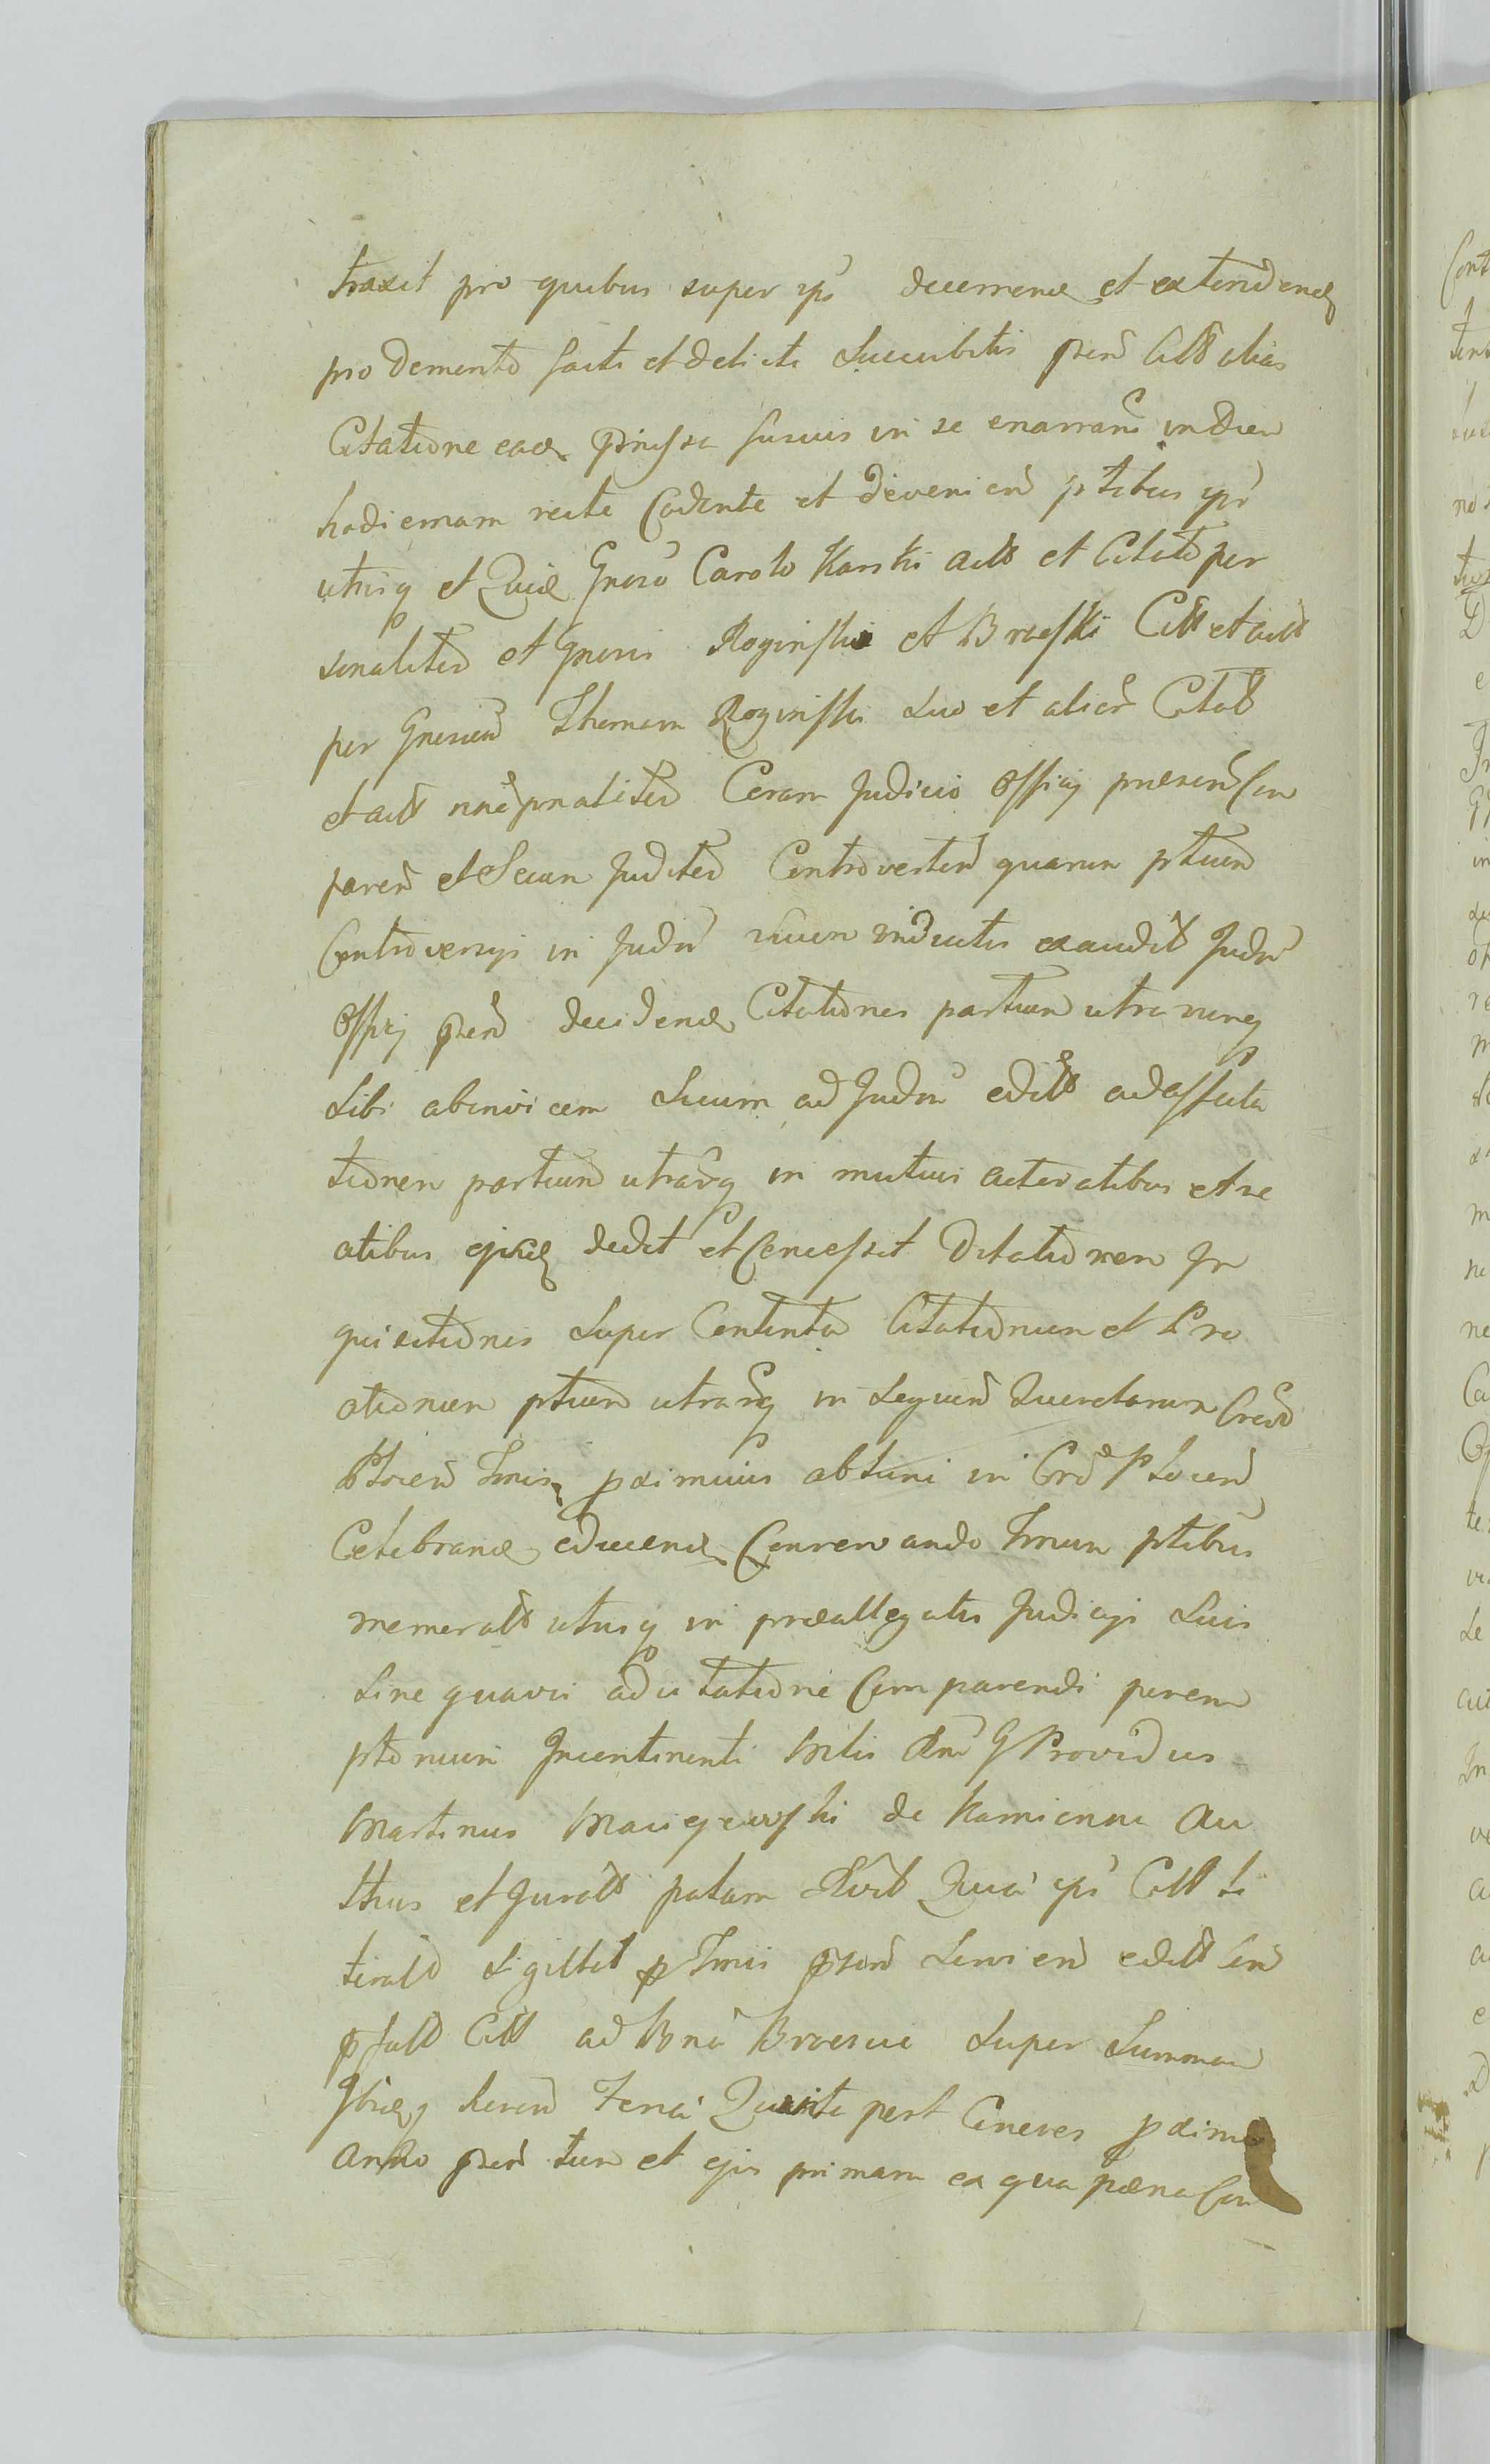 traxit pro quibus super ips decernend et extendend
pro demerito facti et delicti Succubitis pñ Citt alias
Citatione ead pmissa fusius in se enarrans in diem
hodiernam recte Cadente et devenien ptibus ips
utrisq et Quid Gnoso Carolo Karski actt et Citato per
sonaliter et Gnosis Roginski et Braeski Citt et actt
per Gnosum Thomam Roginski Suo et alior Citat
et actt nne psnaliter Coram Judicio Officij præsen Com
paren et Secum Juditer Controverten quarum ptium
Controversijs in Judm suum inductis exaudit Judm
Officij psen decidend Citationes partium utrarumq
Sibi abinvicem Suum ad Judm editt ad affecta
tionem partium utrarq in mutuis actoratibus et re
atibus ejusd dedit et Concessit Dilationem In
quisitionis Super Contenta Citationum et Pro
ationum ptium utrarq in Sequen Querelarum Crend
Plocen Tmis pximius absuni in Crd Plocen
Celebrand educend Conservando Tmum ptibus
memoratt utrisq in præallegatis Judicijs Suis
Sine quavis adcitatione Comparendi perem
ptorium Incontinenti Mitis Dni G Providus
Martinus Maciejewski de Kamienna Au
thus et Juratt palam Rlvit Quia ips Citt li
terall Sigillat p Tmi psen Servien editt in
pfatt Citt ad Bona Braescie Super Summam
Gbieq heren Feria Quinta post Cineres pxime
Anno psen tum et ejus primam ex qua pæna Con